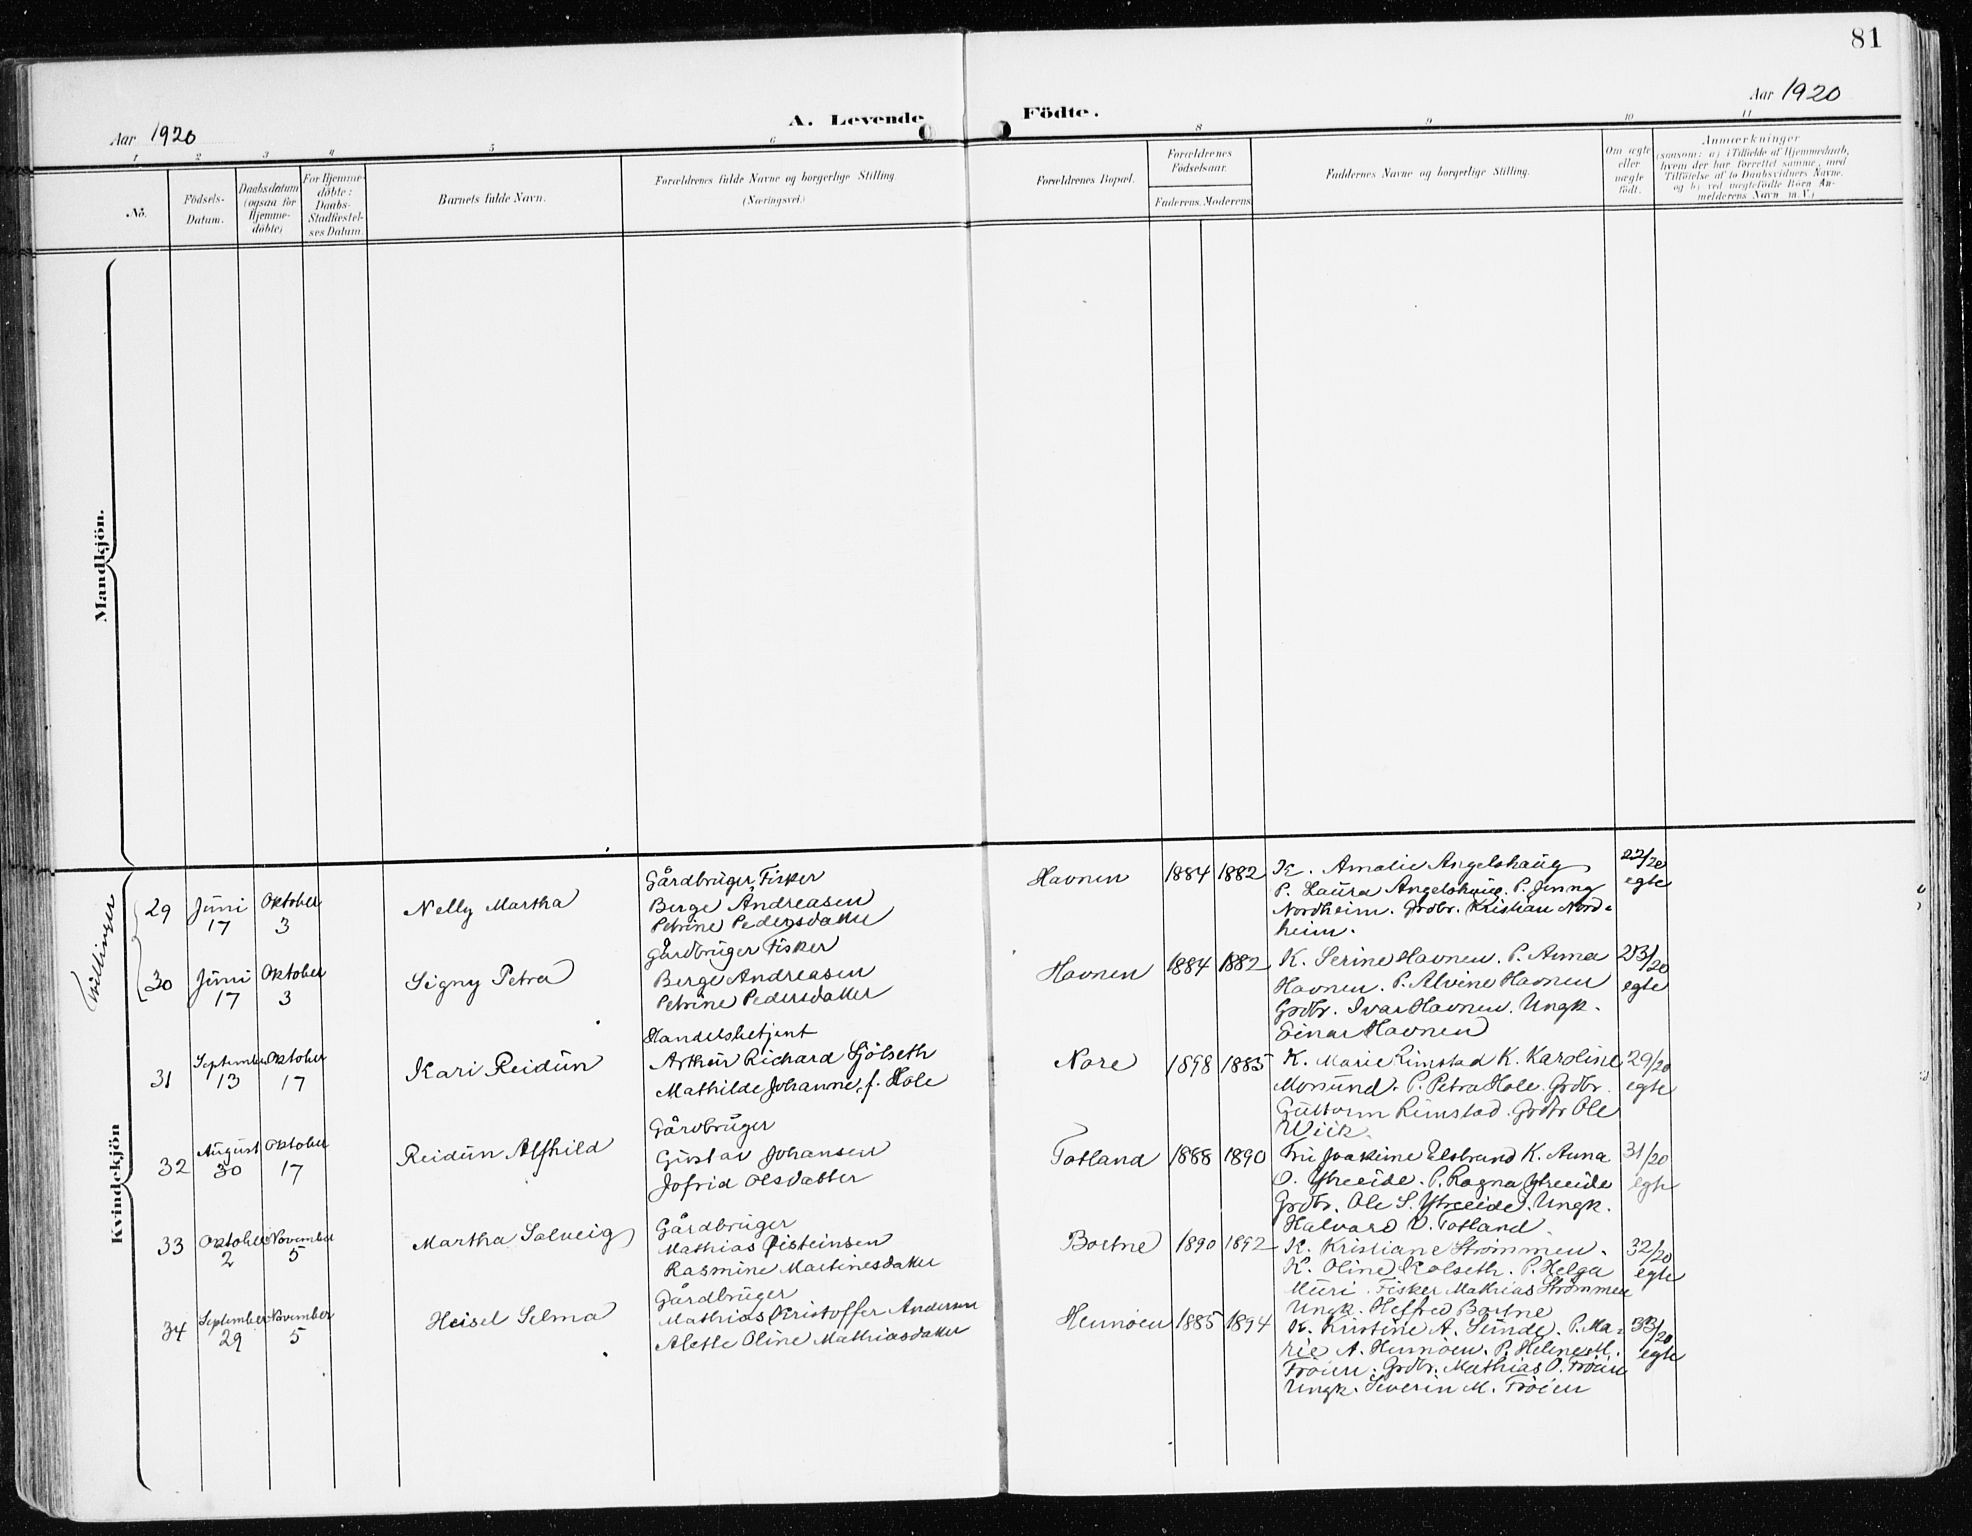 81
Aar 1920
A. Levende Födte.
Aar 1920
1 2 3 4 5 6 8 9 10 11
No.
Födsels-
Datum.
Daabsdatum
(ogsaa for
Hjemme-
döbte)
For Hjemme-
döbte:
Daabs-
Stadfæstel-
ses Datum.
Barnets fulde Navn.
Forældrenes fulde Navne og borgerlige Stilling
(Næringsvei.)
Forældrenes Bopæl.
Forældrenes
Födselsaar.
Faderens. Moderens
Faddernes Navne og borgerlige Stilling.
Om ægte
eller
uægte
födt.
Anmærkninger
(saasom: a) i Tilfælde af Hjemmedaab,
hvem der har forrettet samme, med
Tilföielse af to Daabsvidners Navne.
og b) ved uægtefödte Börn An-
melderens Navn m.V.)
Mandkjön.
Kvindekjön
Tvillinger
29 Juni 17 Oktober 3
Nelly Martha
Gårdbruger Fisker
Berge Andreasen
Petrine Pedersdatter
Havnen 1884 1882
K. Amalie Angelshaug
P. Laura Angelshaug. P. Jenny
Nordheim. Grdbr. Kristian Nord-
heim.
22/20
egte
30 Juni 17 Oktober 3
Signy Petra
Gårdbruger Fisker
Berge Andreasen
Petrine Pedersdatter
Havnen 1884 1882
K. Serine Havnen. P. Anna
Havnen. P. Alvine Havnen
Grdbr. Ivar Havnen. Ungk.
Einar Havnen
23/20
egte
31 September 13 Oktober 17
Kari Reidun
Handelsbetjent
Arthur Richard Gjölseth
Mathilde Johanne, f. Hole
Nore 1898 1885
K. Marie Rimstad K. Karoline
Monsund. P. Petra Hole. Grdbr.
Guttorm Rimstad. Grdbr Ole
Wiik.
29/20
egte
32 August 30 Oktober 17
Reidun Alfhild
Gårdbruger
Gustav Johansen
Jofrid Olsdatter
Totland 1888 1890
Fru Joakime Elstrand K. Anna
O. Ytreeide. P. Ragna Ytreeide
Grdbr. Ole S. Ytreeide. Ungk.
Halvard O. Totland.
31/20
egte
33 Oktober 2 November 5
Martha Solveig
Gårdbruger
Mathias Eisteinsen
Rasmine Martinesdatter
Bortne 1890 1892
K. Kristiane Strömmen.
K. Oline Kolseth. P. Helga
Muri. Fisker Mathias Strömmen
Ungk. Bortne
32/20
egte
34 September 29 November 5
Heisel Selma
Gårdbruger
Mathias Kristoffer Andersen
Alette Oline Mathiasdatter
Hennöen 1885 1894
K. Kristine A. Sünde. P. Ma-
rie A. Hennöen. P. Heline M.
Fröien. Grdbr. Mathias O. Fröien
Ungk. Severin M. Fröien
33/20
egte